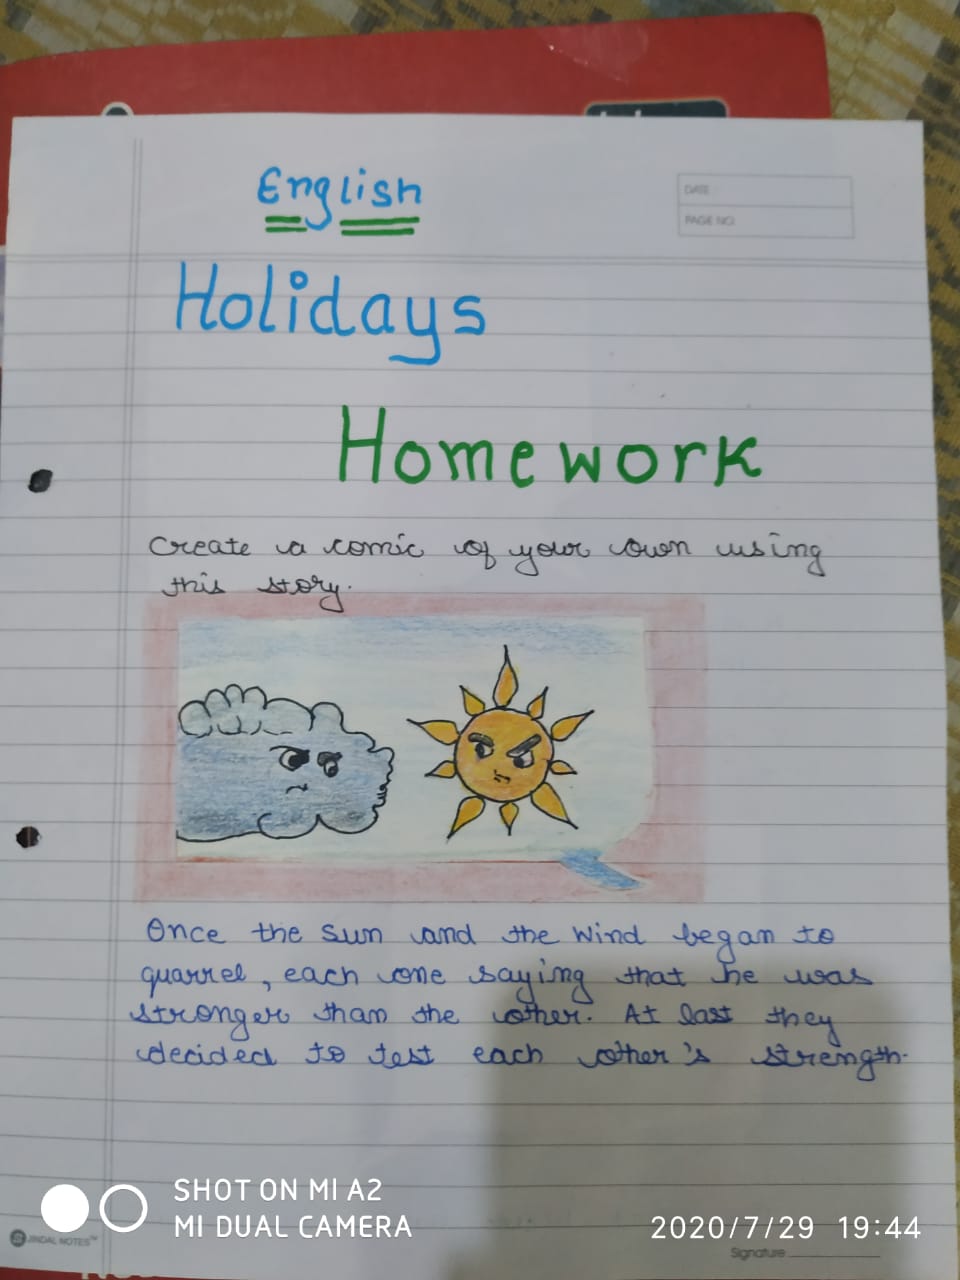 English
DATE :
PAGE NO.
Holidays
Homework
Create a comic of your own using
this story.
Once the Sun and the Wind began to
quarrel, each one saying that he was
stronger than the other. At last they
decided to test each other's strength.
SHOT ON MI A2
MI DUAL CAMERA
2020/7/29 19:44
JINDAL NOTES™
Signature